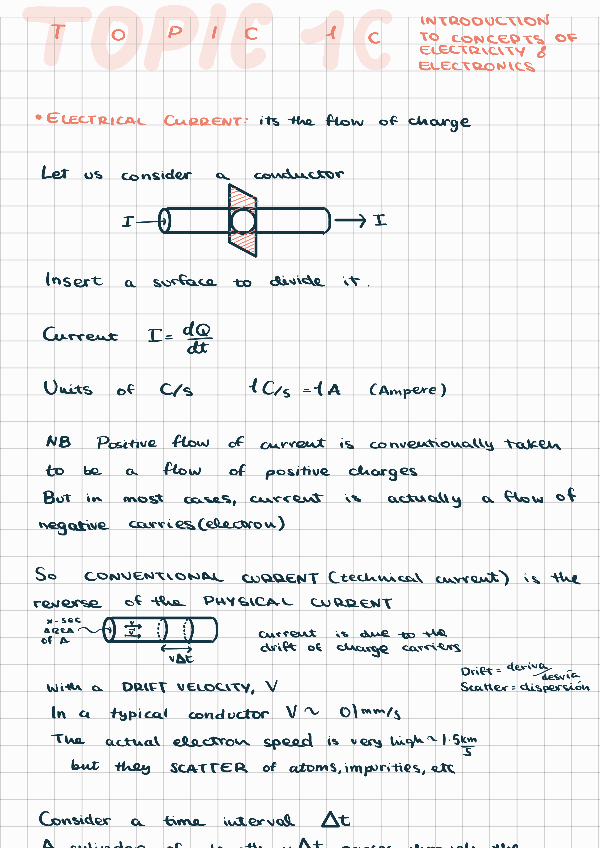 TOPIC 1C
T O P I C 1 C
INTRODUCTION
TO CONCEPTS OF
ELECTRICITY &
ELECTRONICS
• ELECTRICAL CURRENT: its the flow of charge
Let us consider a conductor
I → I
Insert a surface to divide it.
Current I = dQ/dt
Units of C/s 1C/s = 1A (Ampere)
NB Positive flow of current is conventionally taken
to be a flow of positive charges
But in most cases, current is actually a flow of
negative carries (electron)
So CONVENTIONAL CURRENT (technical current) is the
reverse of the PHYSICAL CURRENT
x-sec
AREA
OF A
v
vΔt
current is due to the
drift of charge carriers
Drift = deriva/desvía
Scatter = dispersión
With a DRIFT VELOCITY, V
In a typical conductor V ~ 01mm/s
The actual electron speed is very high ~ 1.5 km/s
but they SCATTER of atoms, impurities, etc
Consider a time interval Δt